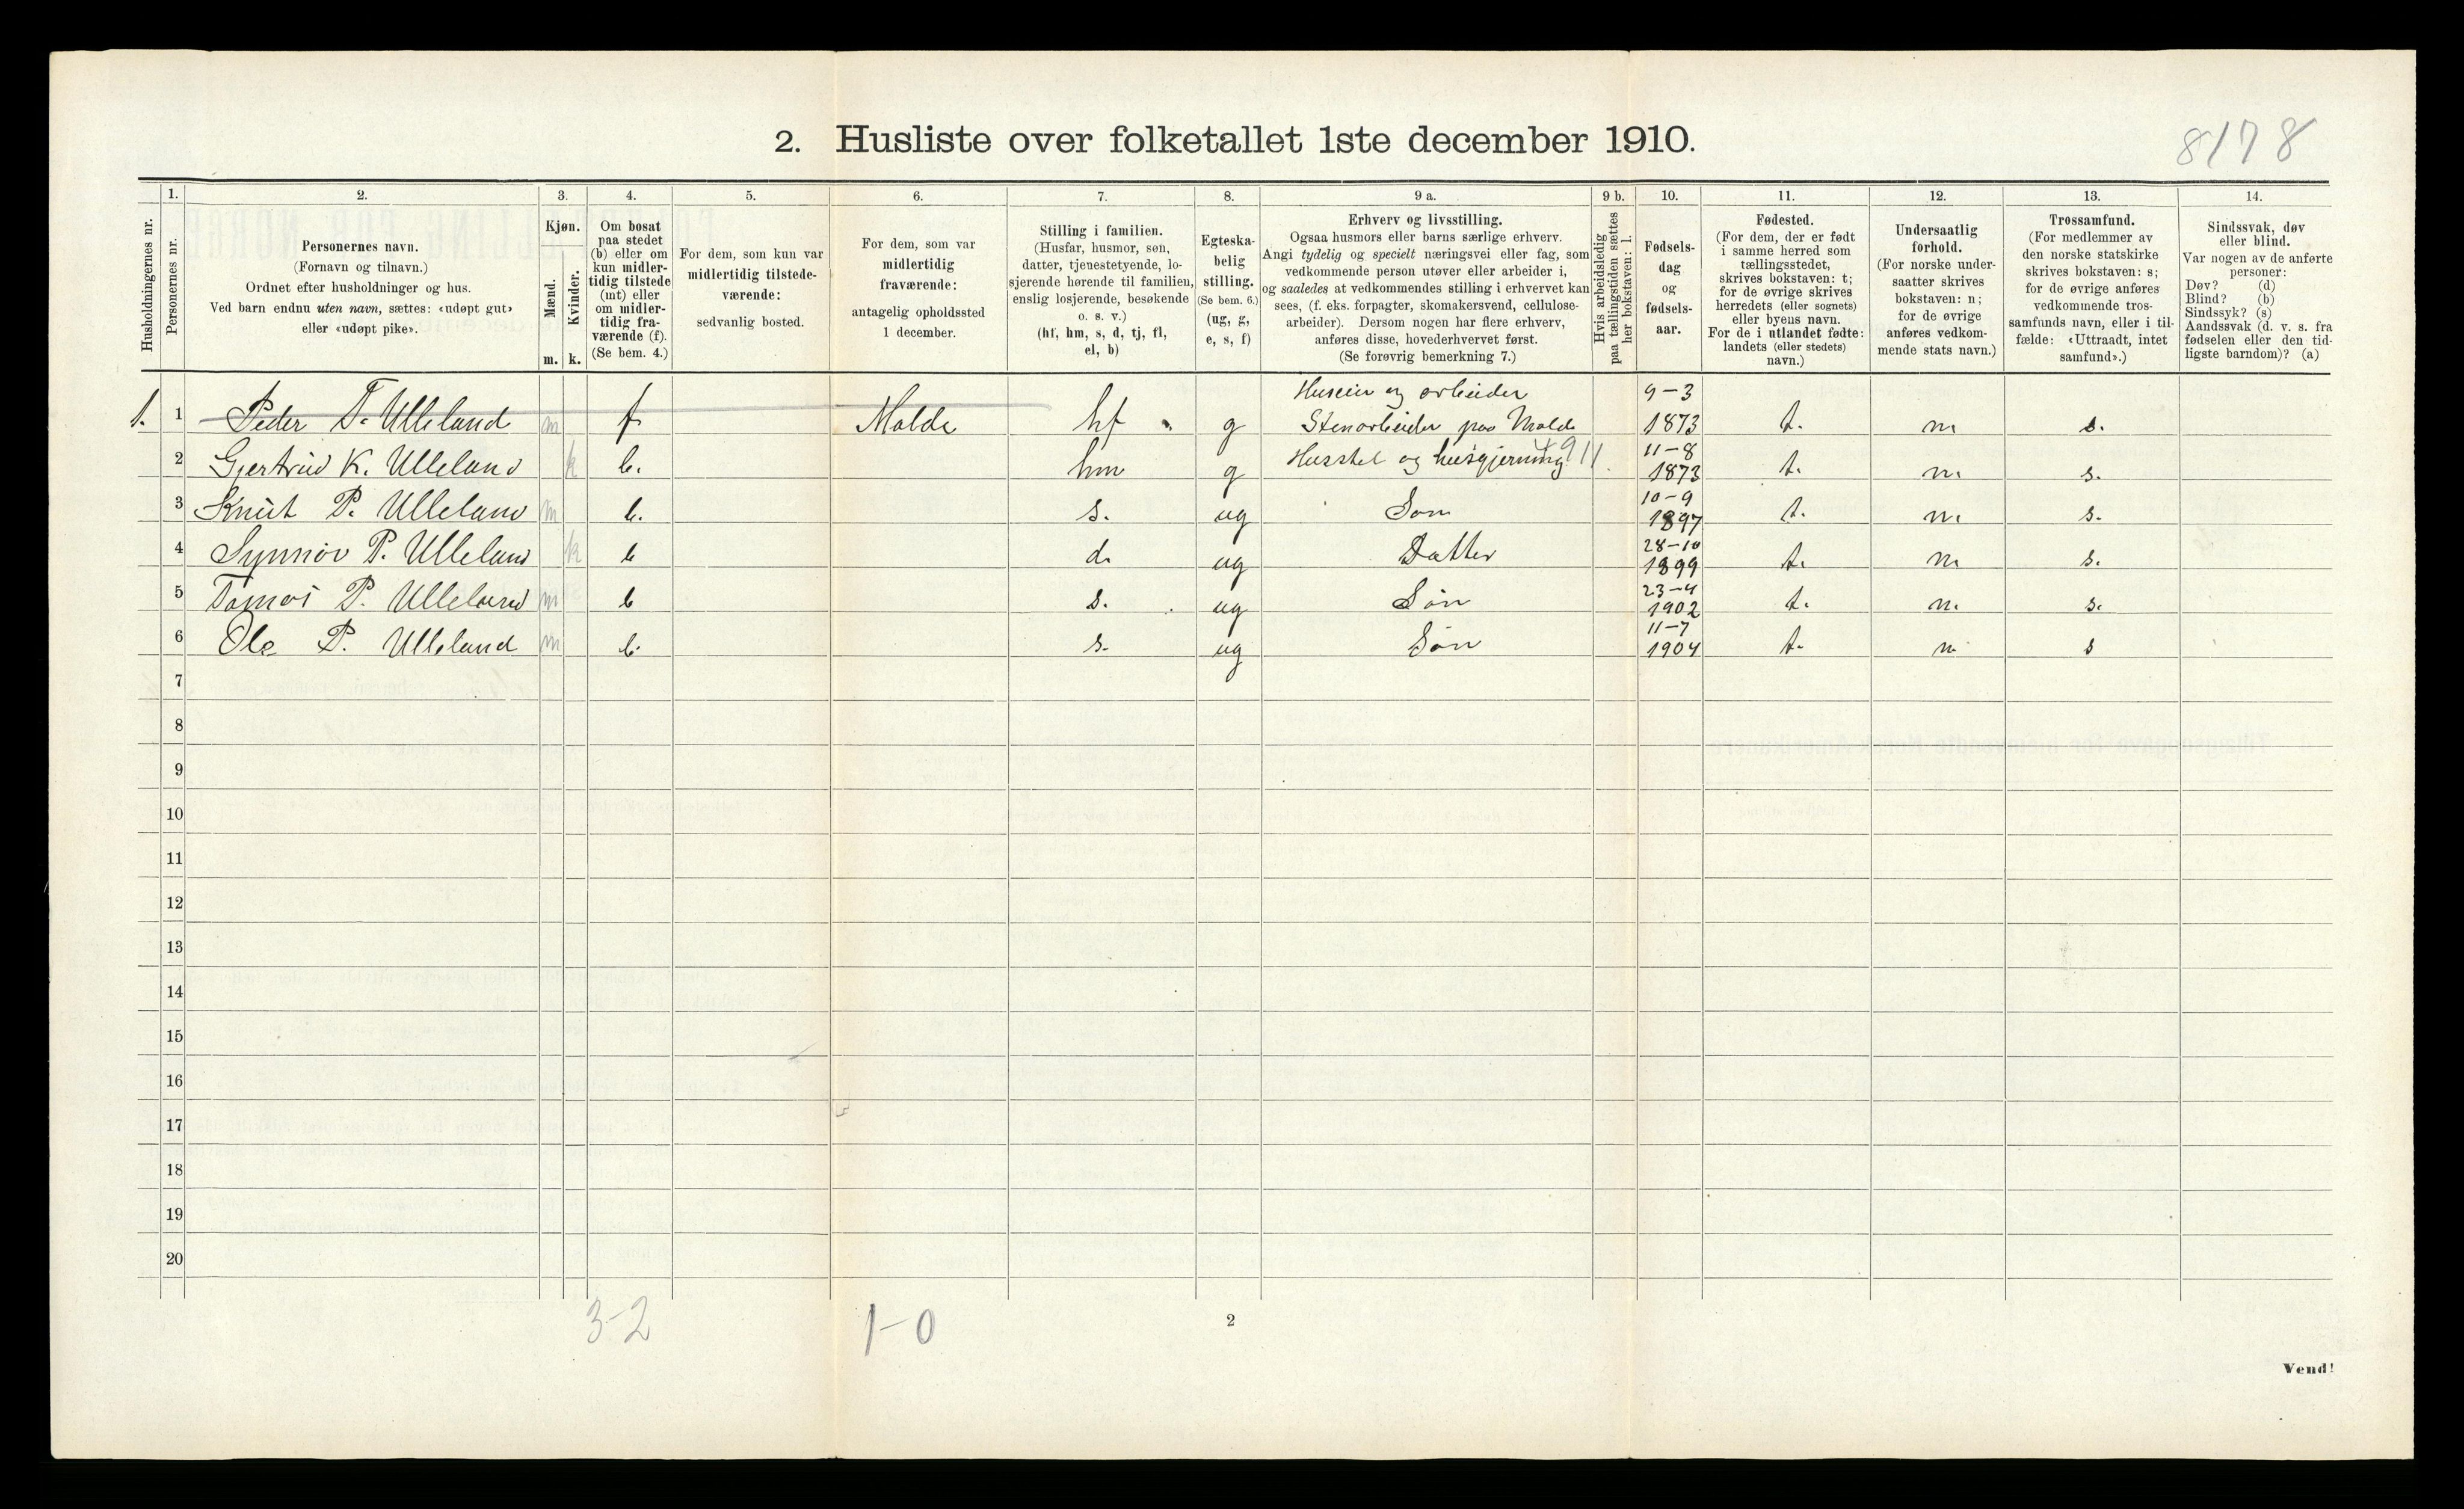 2. Husliste over folketallet 1ste december 1910.
8178
Husholdningernes nr.
1.
Personernes nr.
2.
Personernes navn.
(Fornavn og tilnavn.)
Ordnet efter husholdninger og hus.
Ved barn endnu uten navn, sættes: «udøpt gut»
eller «udøpt pike».
3.
Kjøn.
Mænd.
m.
Kvinder.
k.
4.
Om bosat
paa stedet
(b) eller om
kun midler-
tidig tilstede
(mt) eller
om midler-
tidig fra-
værende (f).
(Se bem. 4.)
5.
For dem, som kun var
midlertidig tilstede-
værende:
sedvanlig bosted.
6.
For dem, som var
midlertidig
fraværende:
antagelig opholdssted
1 december.
7.
Stilling i familien.
(Husfar, husmor, søn,
datter, tjenestetyende, lo-
sjerende hørende til familien,
enslig losjerende, besøkende
o. s. v.)
(hf, hm, s, d, tj, fl,
el, b)
8.
Egteska-
belig
stilling.
(Se bem. 6.)
(ug, g,
e, s, f)
9 a.
Erhverv og livsstilling.
Ogsaa husmors eller barns særlige erhverv.
Angi tydelig og specielt næringsvei eller fag, som
vedkommende person utøver eller arbeider i,
og saaledes at vedkommendes stilling i erhvervet kan
sees, (f. eks. forpagter, skomakersvend, cellulose-
arbeider). Dersom nogen har flere erhverv,
anføres disse, hovederhvervet først.
(Se forøvrig bemerkning 7.)
9 b.
Hvis arbeidsledig
paa tællingstiden sættes
her bokstaven: l.
10.
Fødsels-
dag
og
fødsels-
aar.
11.
Fødested.
(For dem, der er født
i samme herred som
tællingsstedet,
skrives bokstaven: t;
for de øvrige skrives
herredets (eller sognets)
eller byens navn.
For de i utlandet fødte:
landets (eller stedets)
navn.)
12.
Undersaatlig
forhold.
(For norske under-
saatter skrives
bokstaven: n;
for de øvrige
anføres vedkom-
mende stats navn.)
13.
Trossamfund.
(For medlemmer av
den norske statskirke
skrives bokstaven: s;
for de øvrige anføres
vedkommende tros-
samfunds navn, eller i til-
fælde: «Uttraadt, intet
samfund».)
14.
Sindssvak, døv
eller blind.
Var nogen av de anførte
personer:
Døv? (d)
Blind? (b)
Sindssyk? (s)
Aandssvak (d. v. s. fra
fødselen eller den tid-
ligste barndom)? (a)
1. 1 Peder T. Ulleland m f Molde hf g Huseier og arbeider Stenarbeider paa Molde 9-3 1873 t. n. s.
2 Gjertrud K. Ulleland k b. hm g Husstel og husgjerning 11-8 1873 t. n. s.
3 Knut P. Ulleland m b. s. ug Søn 10-9 1897 t. n. s.
4 Synnöv P. Ulleland k b d. ug Datter 28-10 1899 t. n. s.
5 Tomas P. Ulleland m b s. ug Sön 23-4 1902 t. n. s.
6 Ole P. Ulleland m b. s. ug Sön 11-7 1904 t. n. s
7
8
9
10
11
12
13
14
15
16
17
18
19
20
3-2
1-0
2
Vend!